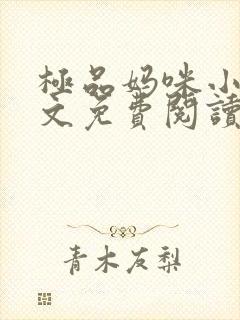 極品妈咪小
文免費閱讀
青木友梨